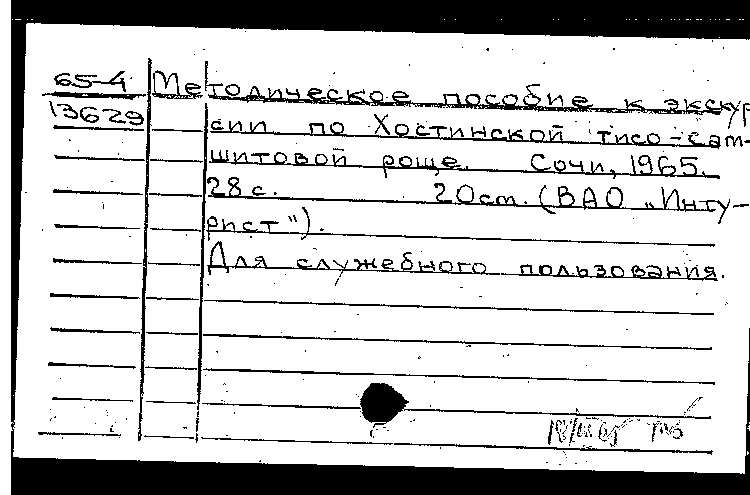 65-4 Методическое пособие к экскур
13629 сии по Хостинской тисо-сам-
шитовой роще. Сочи, 1965.
28 с. 20 см. (ВАО „Инту-
рист").
Для служебного пользования.